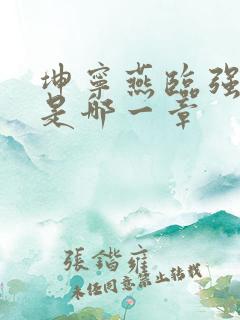 坤寧燕臨强
是哪一章
張鍇雍
未经同意禁止转载